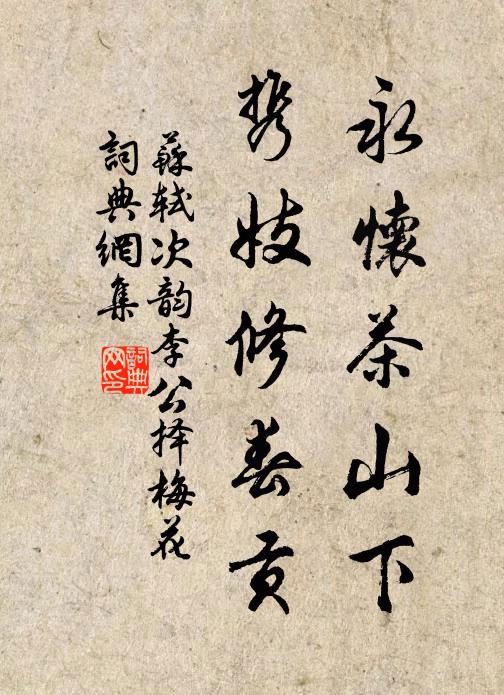 永懷茶山下
携妓修春貢
蘇軾次韵李公择梅花
詞典網集
詞典网印